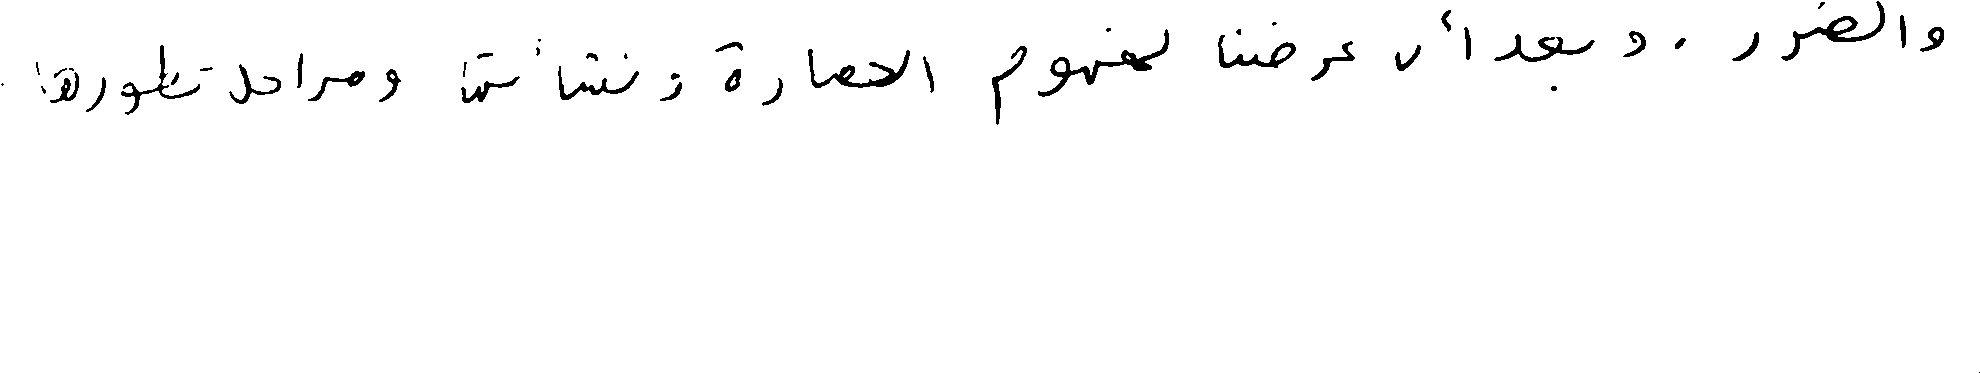 والضرر . وبعد أن عرضنا لمفهوم الحضارة ونشأتها ومراحل تطورها